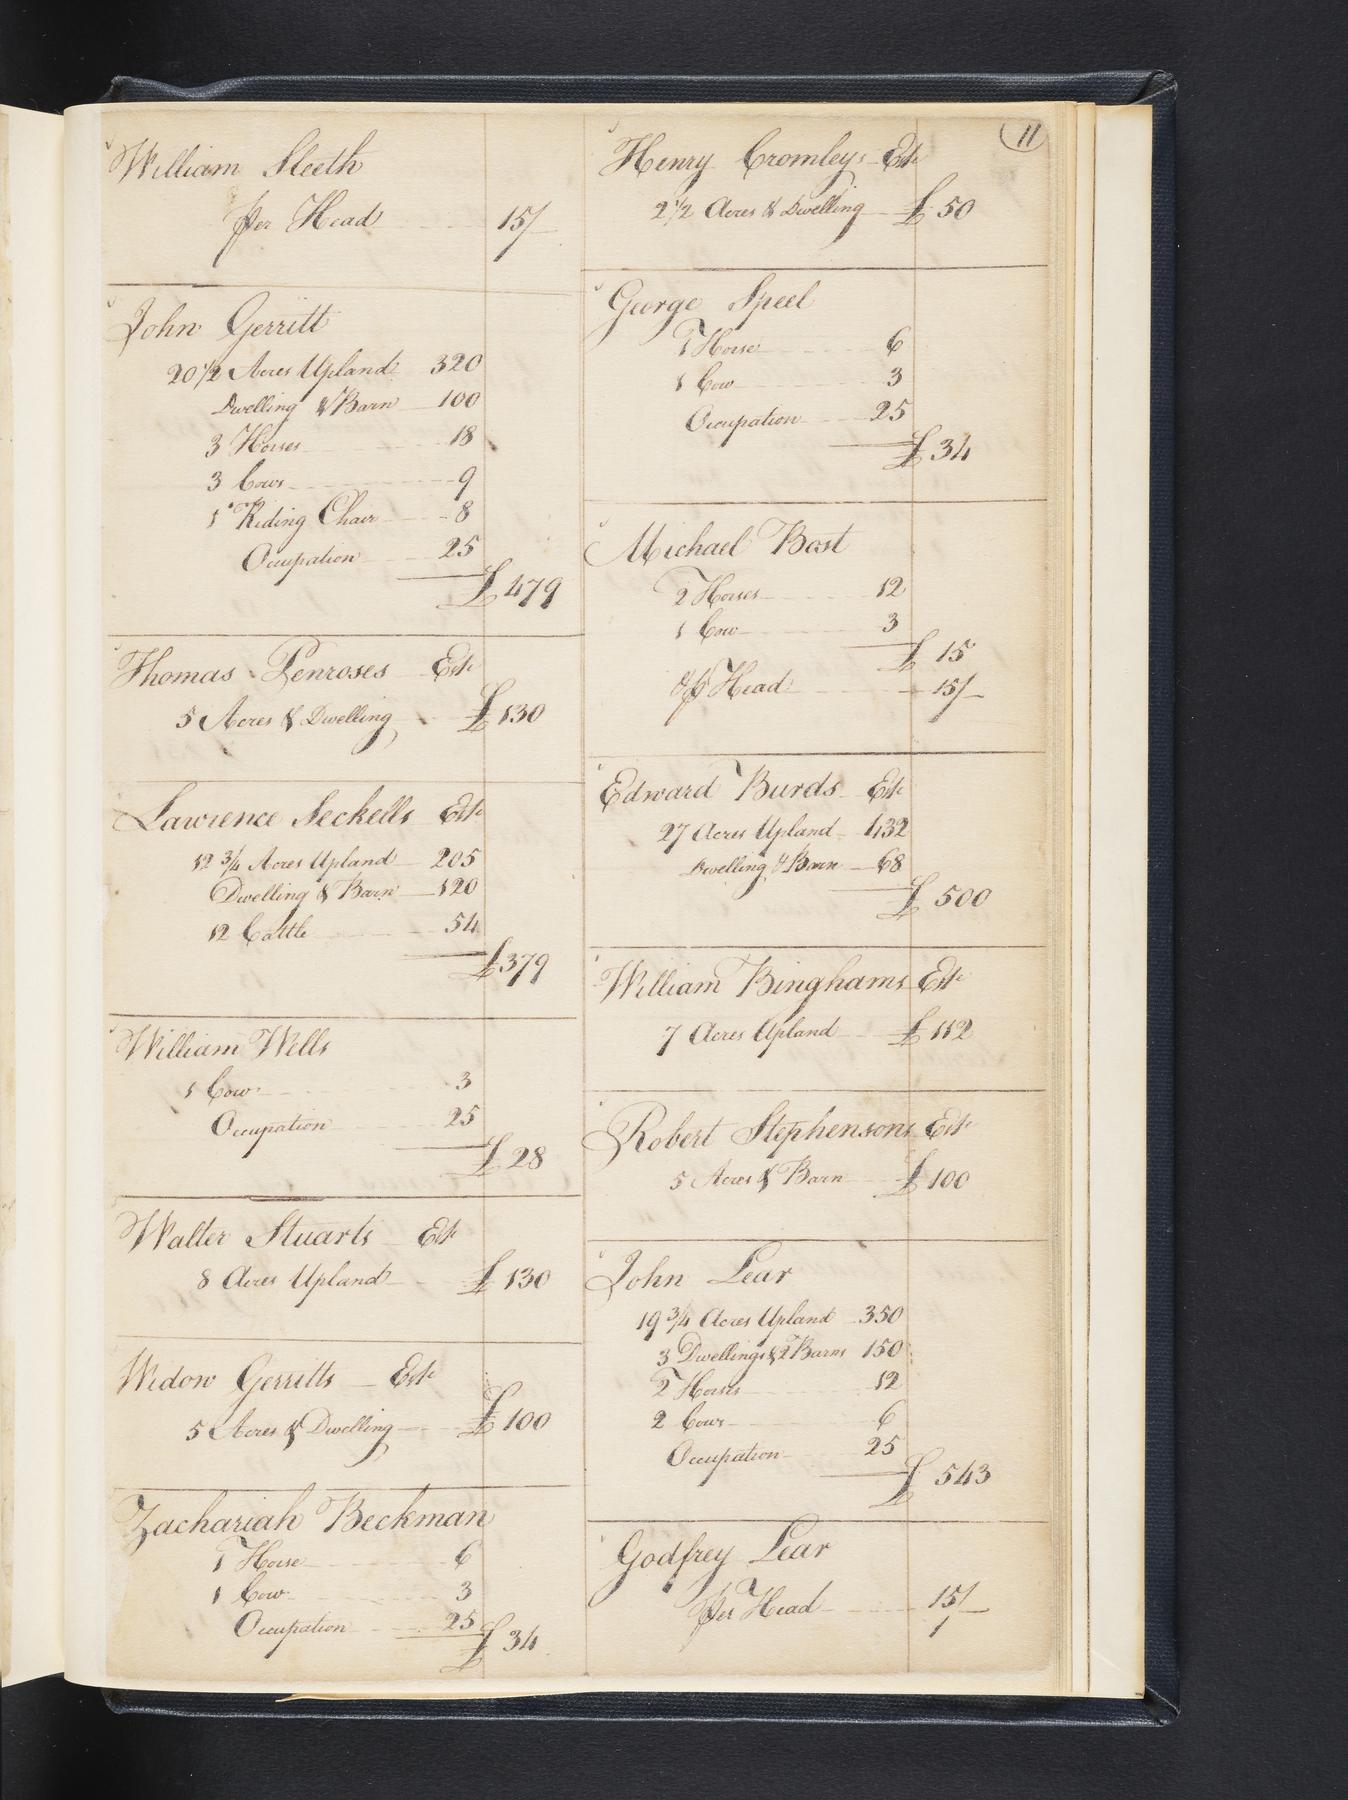 11
William Sleeth
Per Head 15/
John Gerritt
20 1/2 Acres Upland 320
Dwelling & Barn 100
3 Horses 18
3 Cows 9
1 Riding Chair 8
Occupation 25
£ 479
Thomas Penroses Est
5 Acres & Dwelling £ 130
Lawrence Seckells Est
12 3/4 Acres Upland 205
Dwelling & Barn 120
12 Cattle 54
£ 379
William Wells
1 Cow 3
Occupation 25
£ 28
Walter Stuarts Est
8 Acres Upland £ 130
Widow Gerritts Est
5 Acres & Dwelling £ 100
Zachariah Beckman
1 Horse 6
1 Cow 3
Occupation 25
£ 34
Henry Cromleys Est
2 1/2 Acres & Dwelling £ 50
George Speel
1 Horse 6
1 Cow 3
Occupation 25
£ 34
Michael Bast
2 Horses 12
1 Cow 3
£ 15
Head 15/
Edward Burds Est
27 Acres Upland 432
Dwelling & Barn 68
£ 500
William Binghams Est
7 Acres Upland £ 112
Robert Stephensons Est
5 Acres & Barn £ 100
John Lear
19 3/4 Acres Upland 350
3 Dwellings & 2 Barns 150
2 Horses 12
2 Cows 6
Occupation 25
£ 543
Godfrey Lear
Per Head 15/